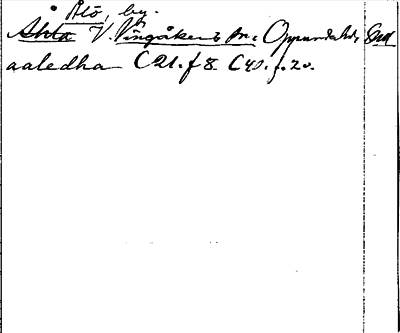 Ålö, by.
Åhta V. Vingåkers sn. Oppunda hd, Sml
aaledha C 21. f 8. C 40. f. 20.